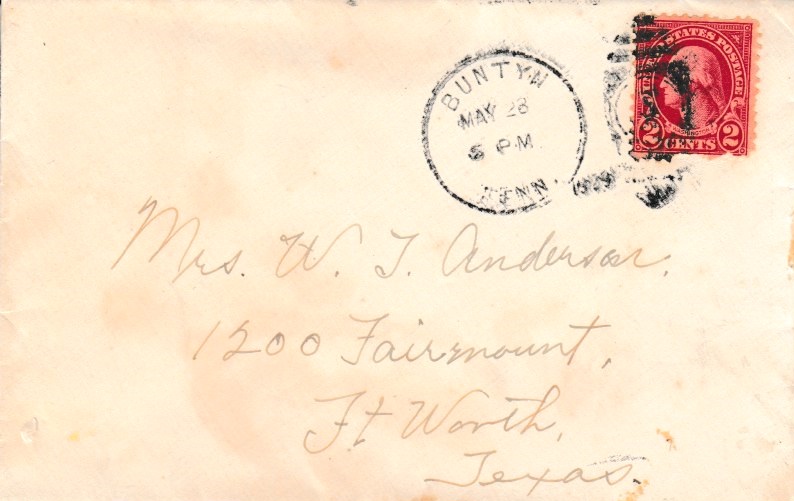 BUNTYN
MAY 28
PM
TENN
STATES POSTAGE
2 CENTS 2
Mrs. W. T. Anderson.
1200 Fairmount,
Ft Worth,
Texas.